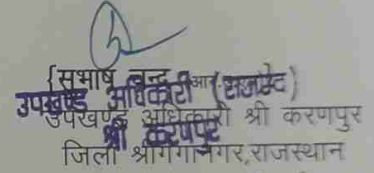 (सुभाष चन्द्र आर.
उपखण्ड अधिकारी (राजमेट)
उपखण्ड अधिकारी श्री करणपुर
श्री करणपुर
जिला श्रीगंगानगर, राजस्थान